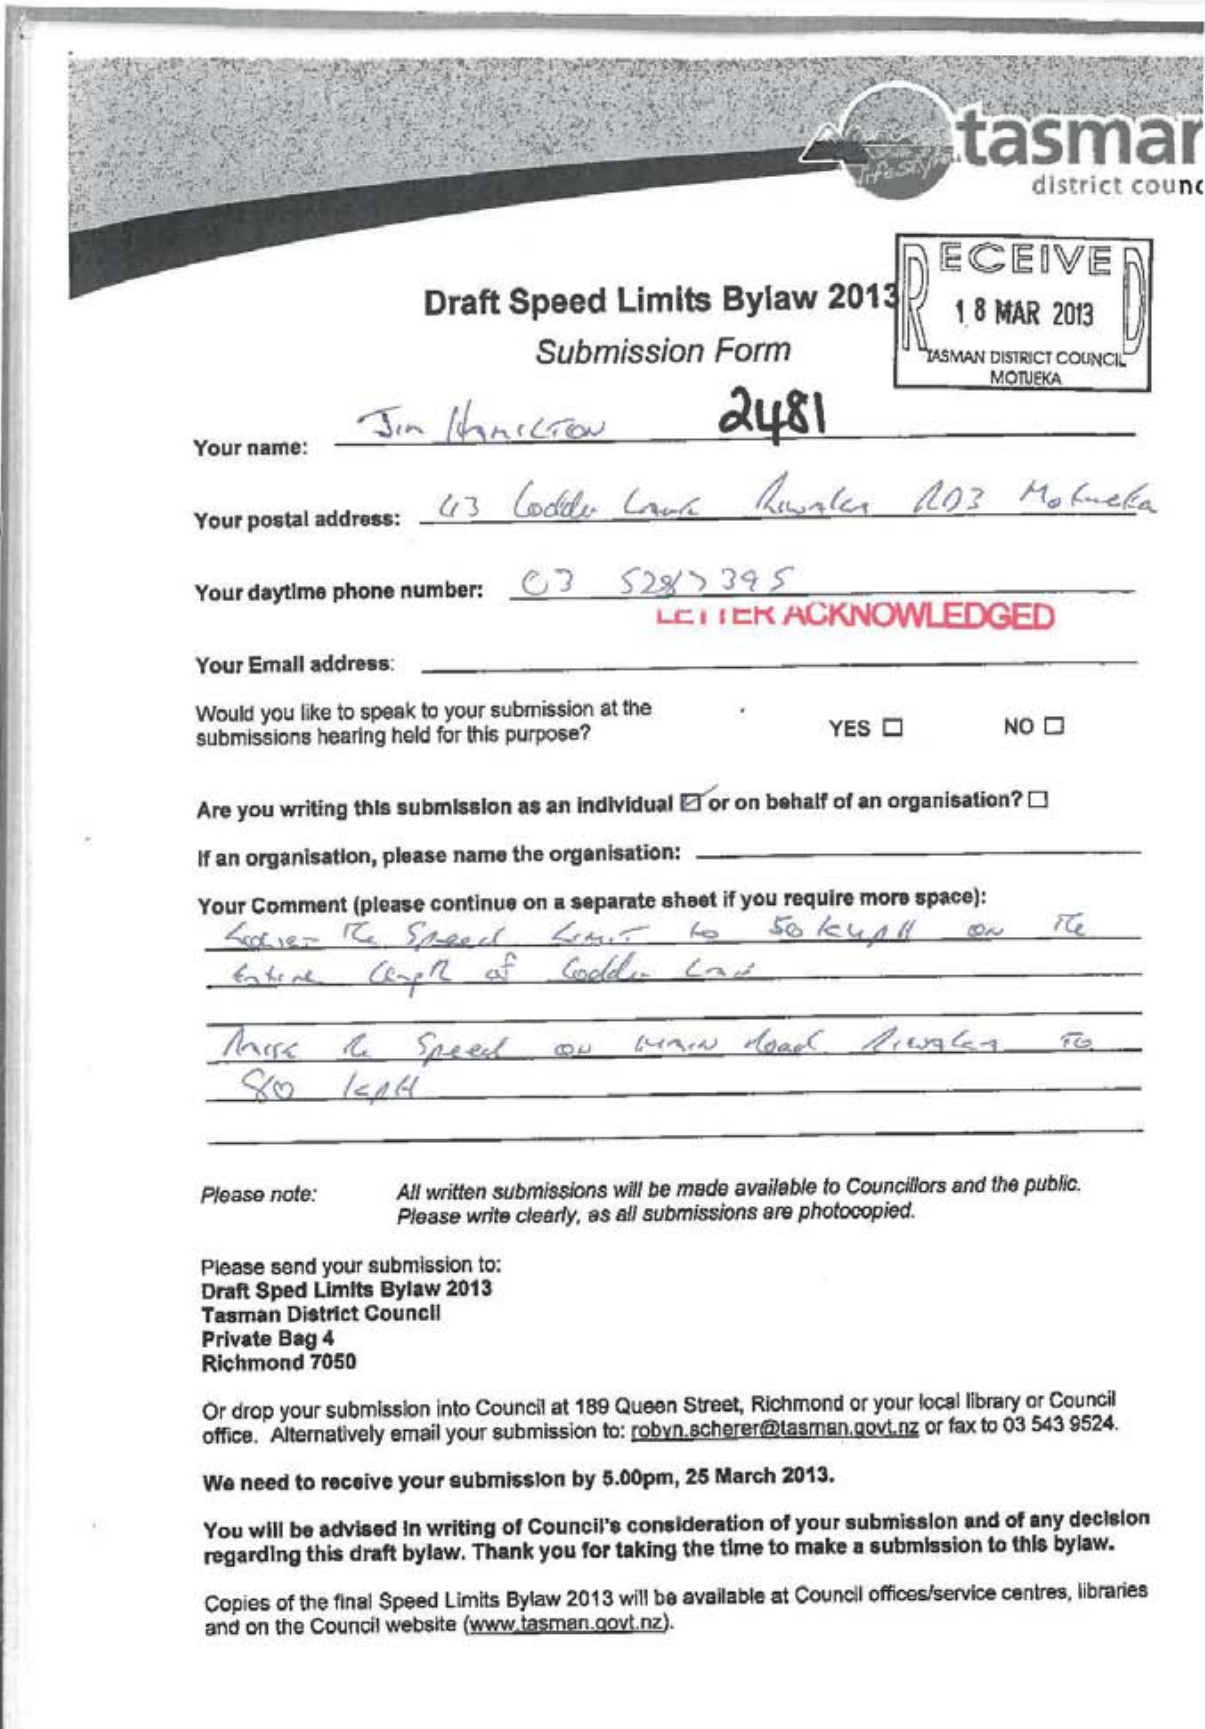 tasman
district counc
RECEIVED
18 MAR 2013
TASMAN DISTRICT COUNCIL
MOTUEKA
Draft Speed Limits Bylaw 2013
Submission Form
2481
Your name: Jim Hamilton
Your postal address: 43 Lodder Lane Riwaka RD3 Motueka
Your daytime phone number: 03 5287395
LETTER ACKNOWLEDGED
Your Email address:
Would you like to speak to your submission at the
submissions hearing held for this purpose? YES ☐ NO ☐
Are you writing this submission as an individual ☑ or on behalf of an organisation? ☐
If an organisation, please name the organisation:
Your Comment (please continue on a separate sheet if you require more space):
the Speed Limit to 50 KMPH on the
Entire length of Lodder Lane
Raise the Speed on Main Road Riwaka To
80 KPH
Please note: All written submissions will be made available to Councillors and the public.
Please write clearly, as all submissions are photocopied.
Please send your submission to:
Draft Sped Limits Bylaw 2013
Tasman District Council
Private Bag 4
Richmond 7050
Or drop your submission into Council at 189 Queen Street, Richmond or your local library or Council
office. Alternatively email your submission to: robyn.scherer@tasman.govt.nz or fax to 03 543 9524.
We need to receive your submission by 5.00pm, 25 March 2013.
You will be advised in writing of Council's consideration of your submission and of any decision
regarding this draft bylaw. Thank you for taking the time to make a submission to this bylaw.
Copies of the final Speed Limits Bylaw 2013 will be available at Council offices/service centres, libraries
and on the Council website (www.tasman.govt.nz).